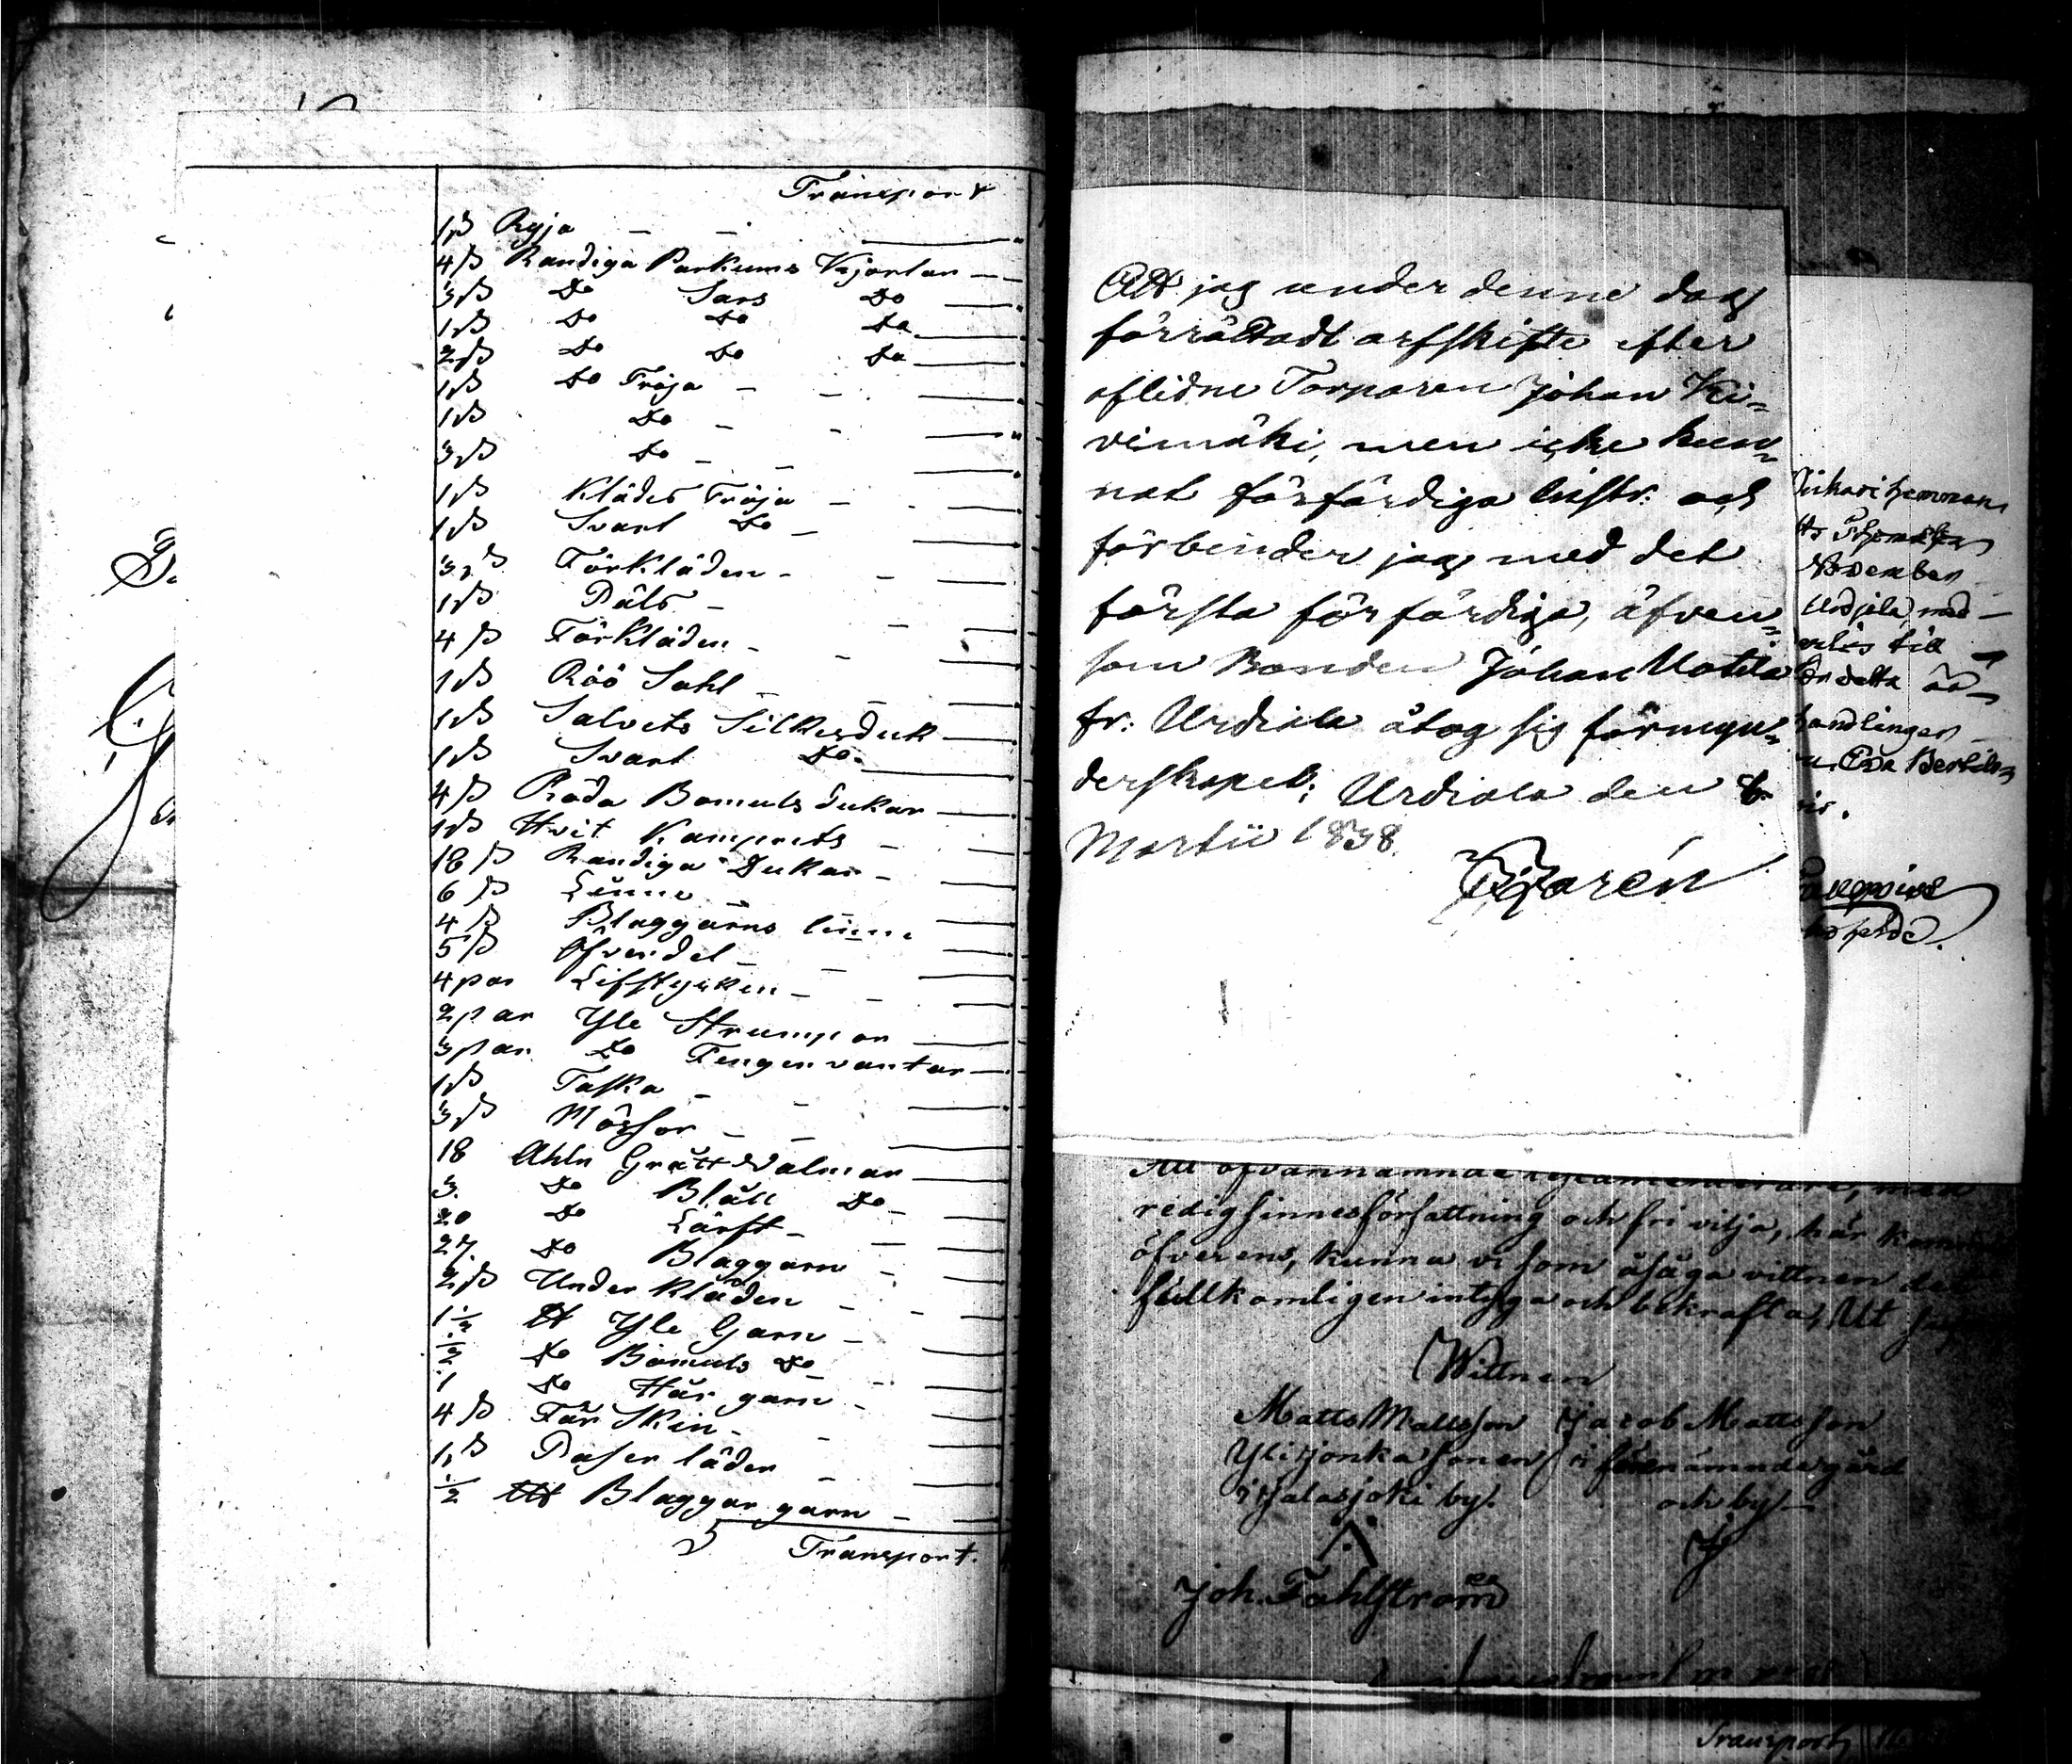 Transport
1 st Ryja
4 st Randiga Parkums Kjortlar
3 st Do Sars Do
1 st Do Do Do
2 st Do Do Do
1 st Do Tröja
1 st Do
3 st Do
1 st Klädes Tröja
1 st Svart Do
3 st Förkläden
1 st Päls
4 st Förkläden
1 st Röö Sahl
1 st Salvets Silkesduk
1 st Svart Do
4 st Röda Bomuls dukar
1 st Hvit Kamprets
18 st Randiga Dukar
6 st Linne
4 st Blaggarns linne
5 st Öfverdel
4 par Lifstycken
2 par Yle Strumpor
3 par Do Fengervantar
1 st Taska
3 st Mössor
18 Ahln Grått Valmar
3 Do Blått Do
20 Do Lärft
27 Do Blaggarn
2 st Underkläden
1 1/2 ℔ Yle Garn
1/2 Do Bomuls Do
1 Do Hår garn
4 st Får Skin
1 st Paser läder
1/2 ℔ Blaggar garn
Transport.
Att jag under denne dag
förrättadt arfskifte efter
aflidne Torparen Johan Ki-
vimäki, men icke kun-
nat förfärdiga Instr. och
förbinder jag med det
första förfärdiga, äfven-
som Bonden Johan Mattila
fr: Urdiala åtog sig förmyn-
derskapet; Urdiala den
Martii 1838.
hemman
November
Urdjala med
till
detta
handlingen
Eva Bertils
Att ofvannämnde
redig sinnesförfattning och fri vilja, här kommit
öfverens, kunna vi som åsåga vittnen det
fullkomligen intyga och bekrafta, Ut
Wittnen
Matts Mattsson Jacob Mattsson
Ylisjonkasonen i förenämnde gård
i Jalasjoki by. och by
Joh. Fahlström
Transport